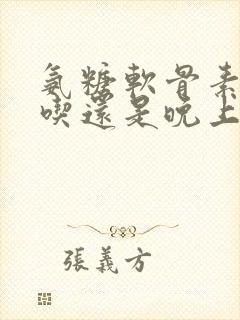 氨糖軟骨素
喫還是晚上
張義方